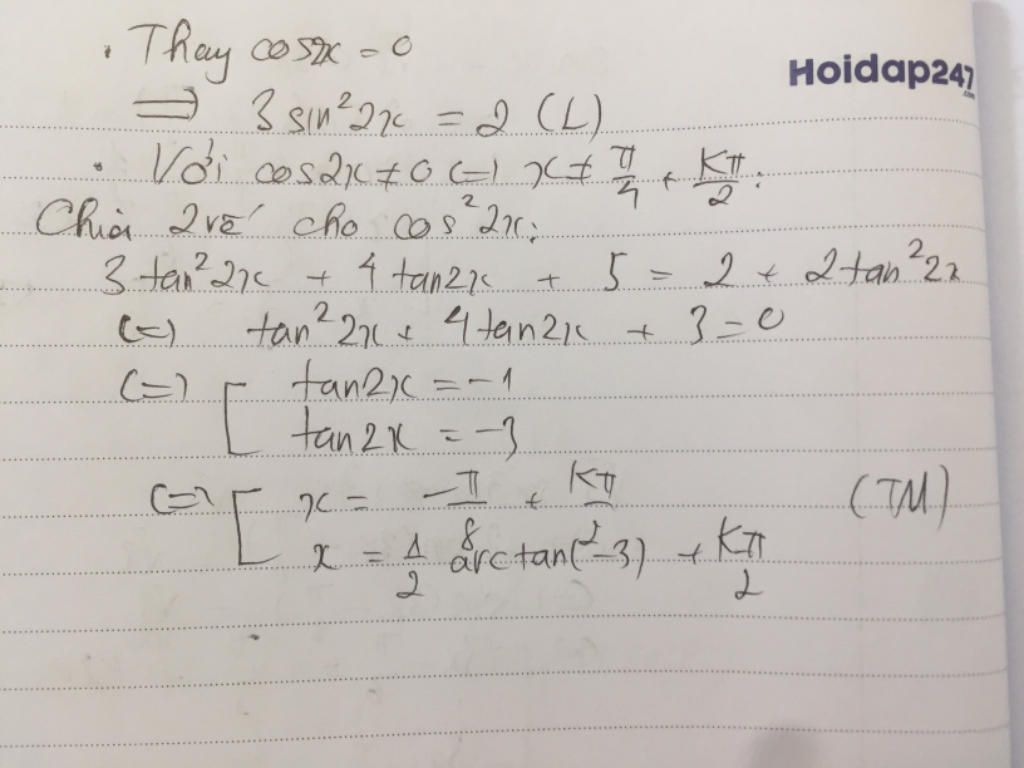 . Thay cos2x = 0
Hoidap247.com
=> 3 sin²2x = 2 (L)
. Với cos2x ≠ 0 <=> x ≠ π/4 + kπ/2 :
Chia 2 vế cho cos²2x:
3 tan²2x + 4 tan2x + 5 = 2 + 2tan²2x
<=> tan²2x + 4tan2x + 3 = 0
<=> [ tan2x = -1
tan2x = -3
<=> [ x = -π/8 + kπ/2 (TM)
x = 1/2 arctan(-3) + kπ/2